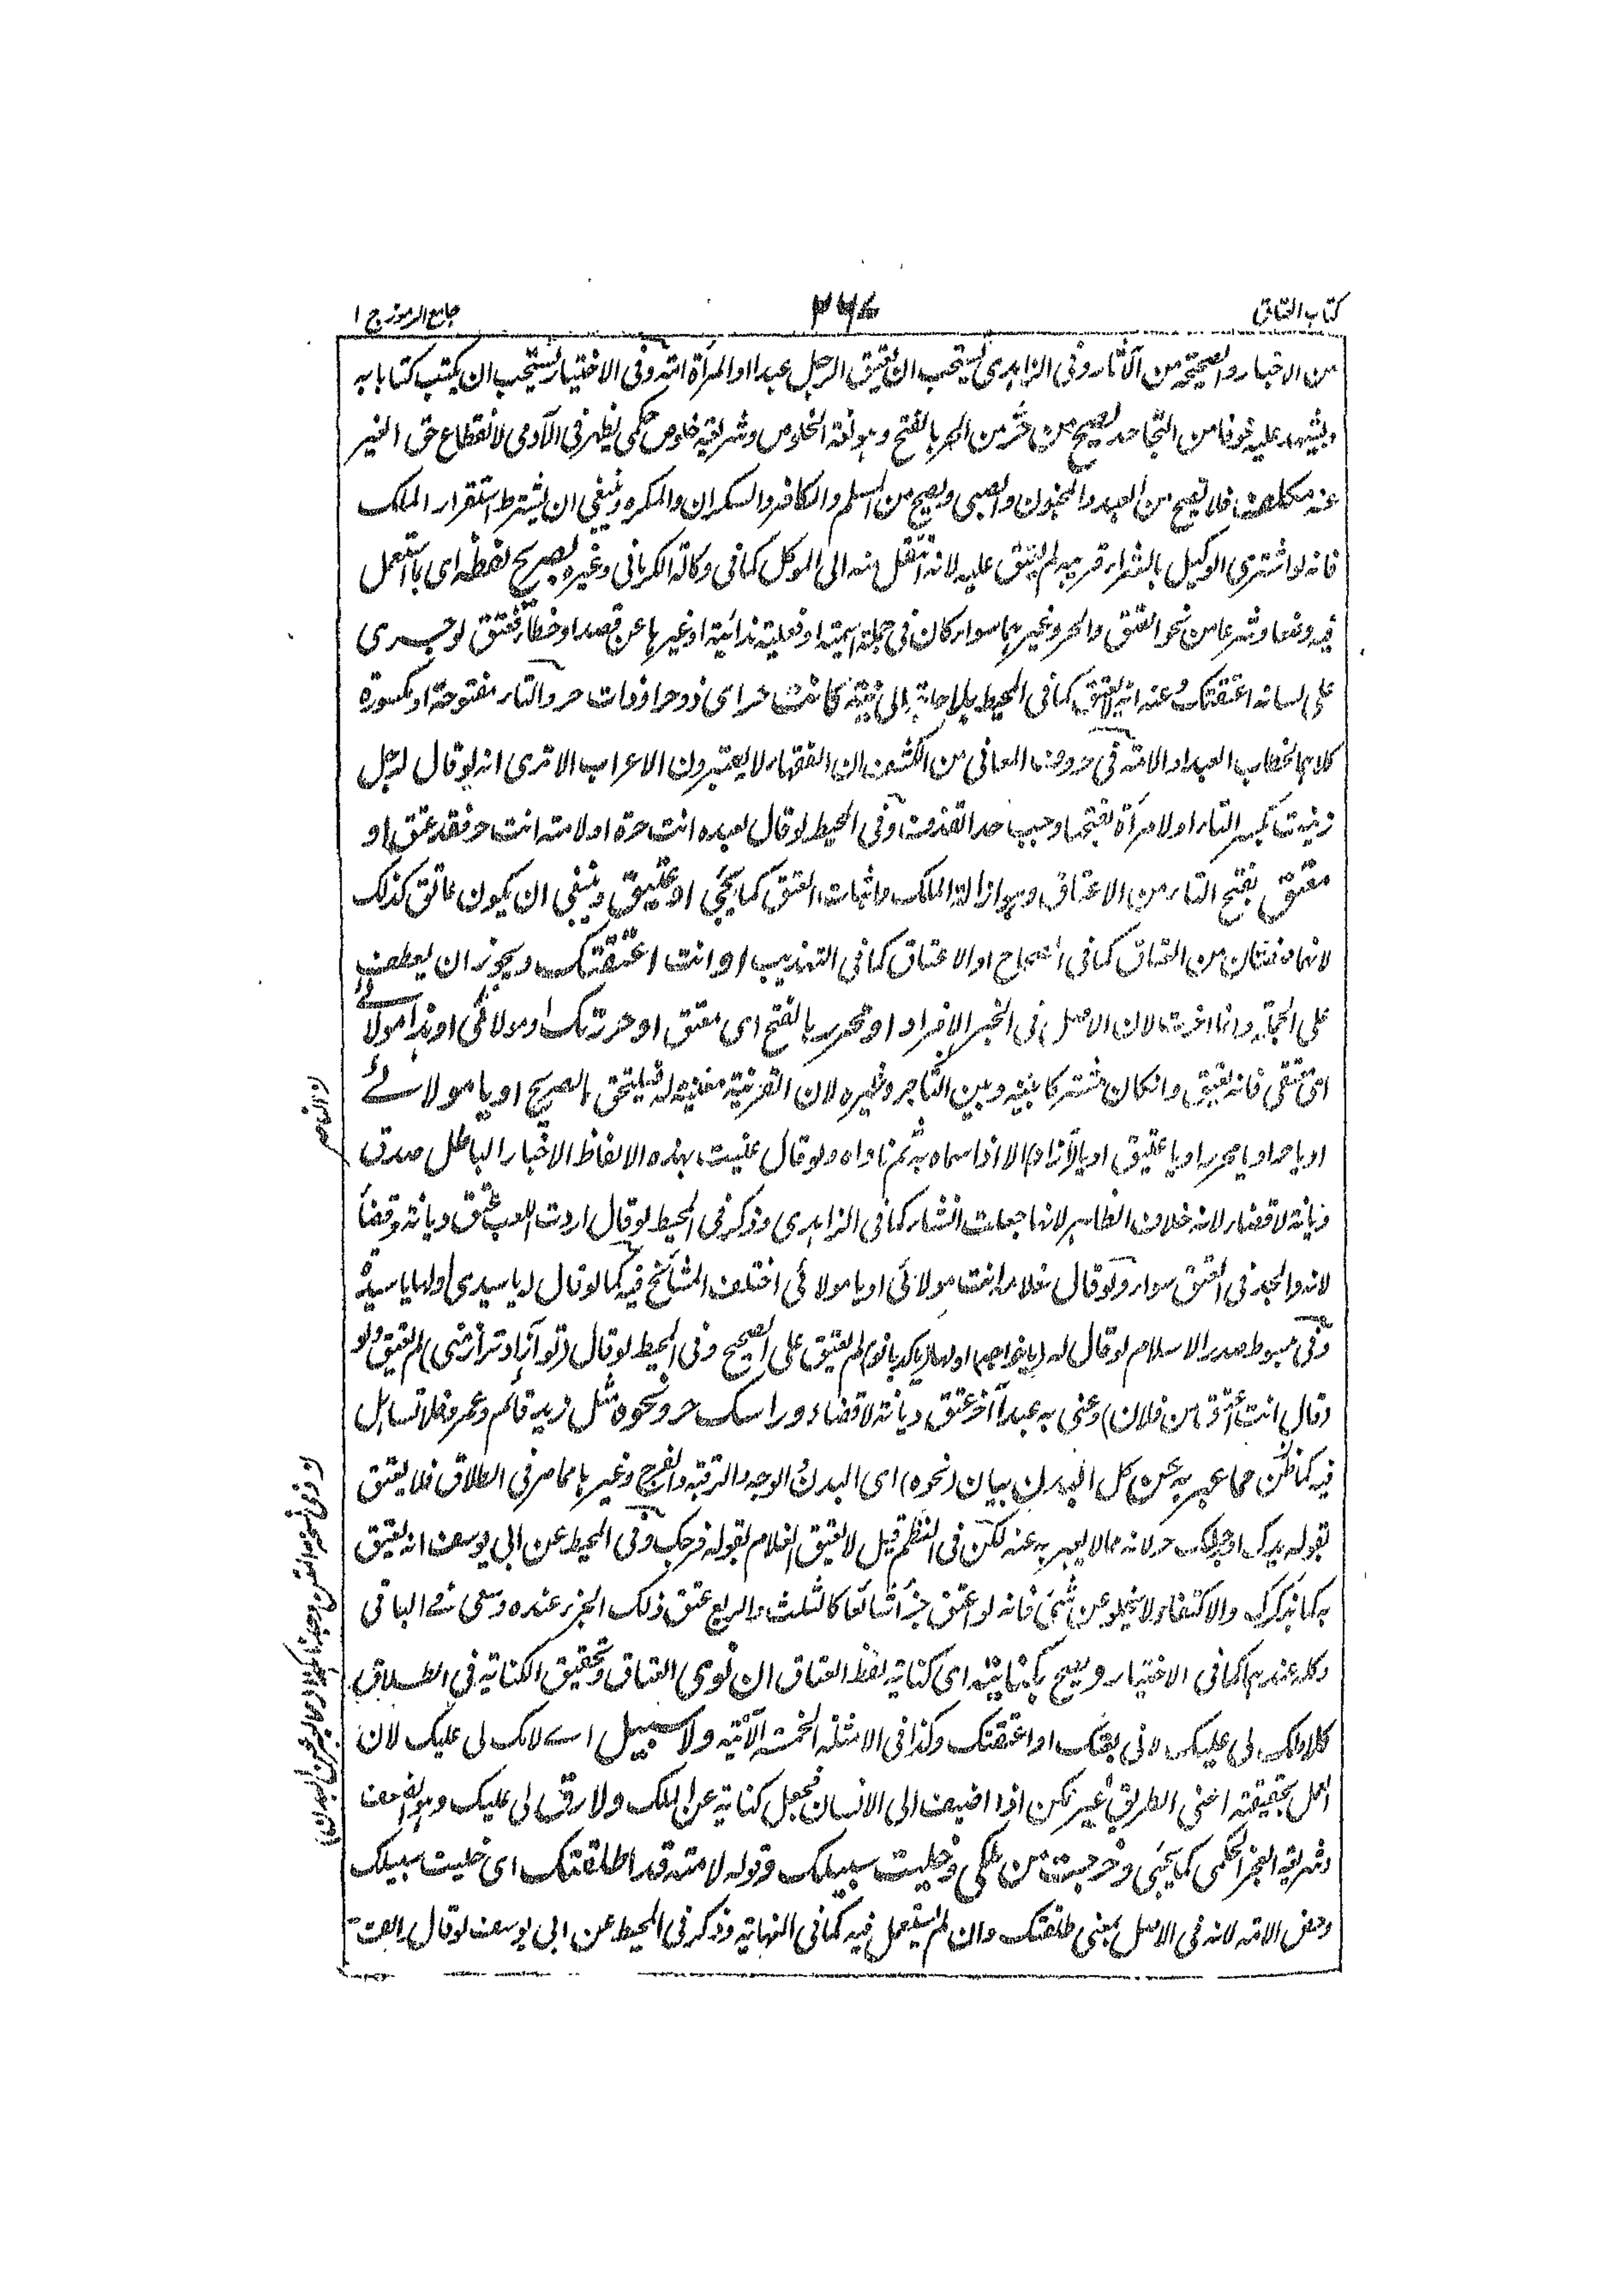 كتاب العتاق
٣٦٧
جامع الرموز ج ١
من الاخبار والصحيحة من الآثار وفى الزاهدى يستحب ان يعتق الرجل عبدا او المرأة امة وفى الاختيار يستحب ان يكتب كتابا به
ويشهد عليه خوفا من التجاحد يصح من حر من الحر بالفتح وهو لغة الخلوص وشريعة خلوص حكمى يظهر فى الآدمى لانقطاع حق الغير
عنه مكلف فلا تصح من العبد والمجنون والصبى ويصح من المسلم والكافر والسكران والمكره وينبغى ان يشترط استقرار الملك
فانه لو اشترى الوكيل بالشراء قريبه لم يعتق عليه لانه انتقل منه الى الموكل كما فى وكالة الكرمانى وغيره بصريح لفظه اى ما استعمل
فيه وضعا وشرعا من نحو العتق والحر وغيرهما سواء كان فى جملة اسمية او فعلية ندائية او غيرها عن قصد او خطأ فعتق لو جرى
على لسانه اعتقتك وعنه انه لا يعتق كما فى المحيط بلا حاجة الى نية كانت حر اى ذو حر او ذات حر والتاء مفتوحة او مكسورة
كلاهما لخطاب العبد او الامة فى حروف المعانى من الكشف ان الفقهاء لا يعتبرون الاعراب الا ترى انه لو قال لرجل
زنيت بكسر التاء او لامرأة بفتحها وجب حد القذف وفى المحيط لو قال لعبده انت حرة او لامته انت حر فقد عتق او
معتق بفتح التاء من الاعتاق وهو ازالة الملك واثبات العتق كما يجئ او عتيق وينبغى ان يكون عاتق كذلك
لانهما صفتان من العتاق كما فى الصحاح او الاعتاق كما فى التهذيب او انت اعتقتك ويجوز ان يعطف
على الجملة وانما اخرت لان الاصل فى الخبر الافراد او محرر بالفتح اى معتق او حررتك او مولائى او هذا مولائے
اى معتقى فانه يعتق وان كان مشتركا بينه وبين الناصر وغيره لان القرينة معينة له فيلتحق بالصريح او يا مولائے
او يا حر او يا محرر او يا عتيق او يا آزاد الا اذا سماه به ثم ناداه ولو قال عنيت بهذه الالفاظ الاخبار الباطل صدق
ديانة لا قضاء لانه خلاف الظاهر لانها جعلت انشاء كما فى الزاهدى وذكر فى المحيط لو قال اردت اللعب عتق ديانة وقضاء
لانه والجد فى العتق سواء ولو قال لغلامه انت مولائى او يا مولائى اختلف المشائخ فيه كما لو قال له يا سيدى او لها يا سيدتى
وفى مبسوط صدر الاسلام لو قال له (يا خواجه) او لها (يا كدبانو) لم يعتق على الصحيح وفى المحيط لو قال (تو آزاد تر از منى) لم يعتق ولو
(قال انت اعتق من فلان) وعنى به عبدا آخر عتق ديانة لا قضاء وراسك حر ونحوه مثل زيد قائم وعمرو فلا تساهل
فيه كما ظن مما عبر به عن كل البدن بيان (نحوه) اى البدن والوجه والرقبة والفرج وغيرها مما مر فى الطلاق فلا يعتق
لقوله يدك او رجلك حر لانه مما لا يعبر به عنه لكن فى النظم قيل لا يعتق الغلام لقوله فرجك وفى المحيط عن ابى يوسف انه يعتق
به كما بذكرك والاكتفاء لا يخلو عن شئ فانه لو اعتق جزأ شائعا كالثلث والربع عتق ذلك الجزء عنده وسعى فے الباقى
وكله عندهما كما فى الاختيار ويصح بكنايته اى كناية لفظ العتاق ان نوى العتاق وتحقيق الكناية فى الطلاق
كلا ملك لى عليك لانى بعتك او اعتقتك وكذا فى الامثلة الخمسة الآتية ولا سبيل اے لا ملك لى عليك لان
العمل بحقيقته اعنى الطريق غير ممكن اذا اضيف الى الانسان فجعل كناية عن الملك ولا رق لى عليك وهو الضعف
وشريعة العجز الحكمى كما يجئ وخرجت من ملكى وخليت سبيلك وقوله لامته قد اطلقتك اى خليت سبيلك
وخص الامة لانه فى الاصل بمعنى طلقتك وان لم يستعمل فيه كما فى النهاية وذكر فى المحيط عن ابى يوسف لو قال